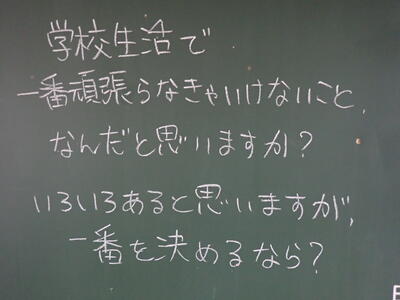 学校生活で
一番頑張らなきゃいけないこと、
なんだと思いますか？
いろいろあると思いますが、
一番を決めるなら？